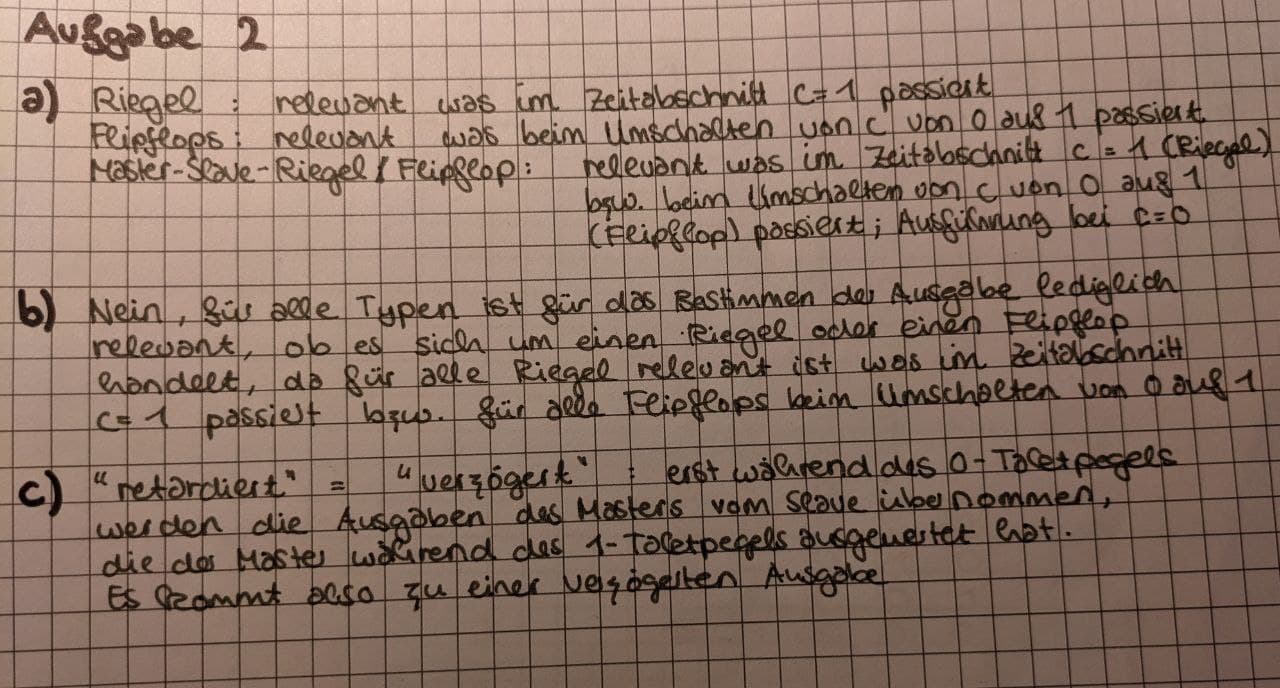 Aufgabe 2
a) Riegel : relevant was im Zeitabschnitt C=1 passiert
Flipflops : relevant was beim Umschalten von C von 0 auf 1 passiert
Master-Slave-Riegel / Flipflop : relevant was im Zeitabschnitt C = 1 (Riegel)
bzw. beim Umschalten von C von 0 auf 1
(Flipflop) passiert ; Ausführung bei C=0
b) Nein, für alle Typen ist für das Bestimmen der Ausgabe lediglich
relevant, ob es sich um einen Riegel oder einen Flipflop
handelt, da für alle Riegel relevant ist was im Zeitabschnitt
C=1 passiert bzw. für alle Flipflops beim Umschalten von 0 auf 1
c) "retardiert" = "verzögert" : erst während des 0-Taktpegels
werden die Ausgaben des Masters vom Slave übernommen,
die der Master während des 1-Taktpegels ausgewertet hat.
Es kommt also zu einer verzögerten Ausgabe